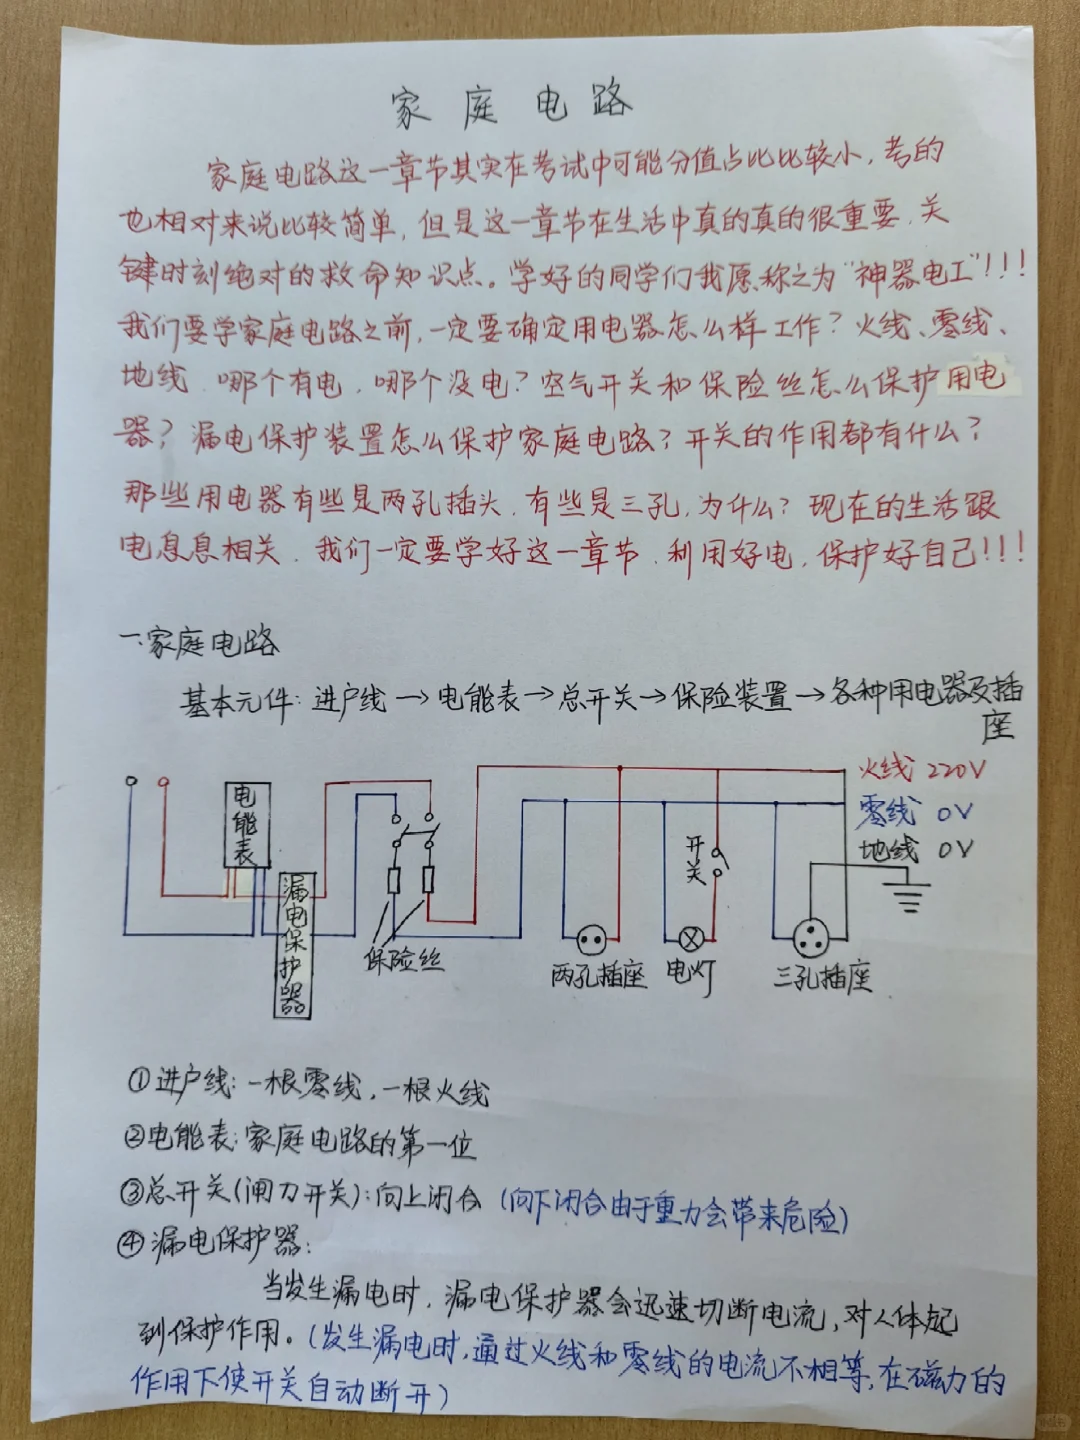 家庭电路
家庭电路这一章节其实在考试中可能分值占比比较小，考的
也相对来说比较简单，但是这一章节在生活中真的真的很重要，关
键时刻绝对的救命知识点。学好的同学们我愿称之为“神器电工”!!!
我们要学家庭电路之前，一定要确定用电器怎么样工作？火线、零线、
地线，哪个有电，哪个没电？空气开关和保险丝怎么保护用电
器？漏电保护装置怎么保护家庭电路？开关的作用都有什么？
那些用电器有些是两孔插头，有些是三孔，为什么？现在的生活跟
电息息相关，我们一定要学好这一章节，利用好电，保护好自己!!!
一、家庭电路
基本元件：进户线→电能表→总开关→保险装置→各种用电器及插
座
火线 220V
零线 0V
地线 0V
电能表
漏电保护器
保险丝
开关
两孔插座
电灯
三孔插座
①进户线：一根零线，一根火线
②电能表：家庭电路的第一位
③总开关(闸刀开关)：向上闭合（向下闭合由于重力会带来危险）
④漏电保护器：
当发生漏电时，漏电保护器会迅速切断电流，对人体起
到保护作用。（发生漏电时，通过火线和零线的电流不相等，在磁力的
作用下使开关自动断开）